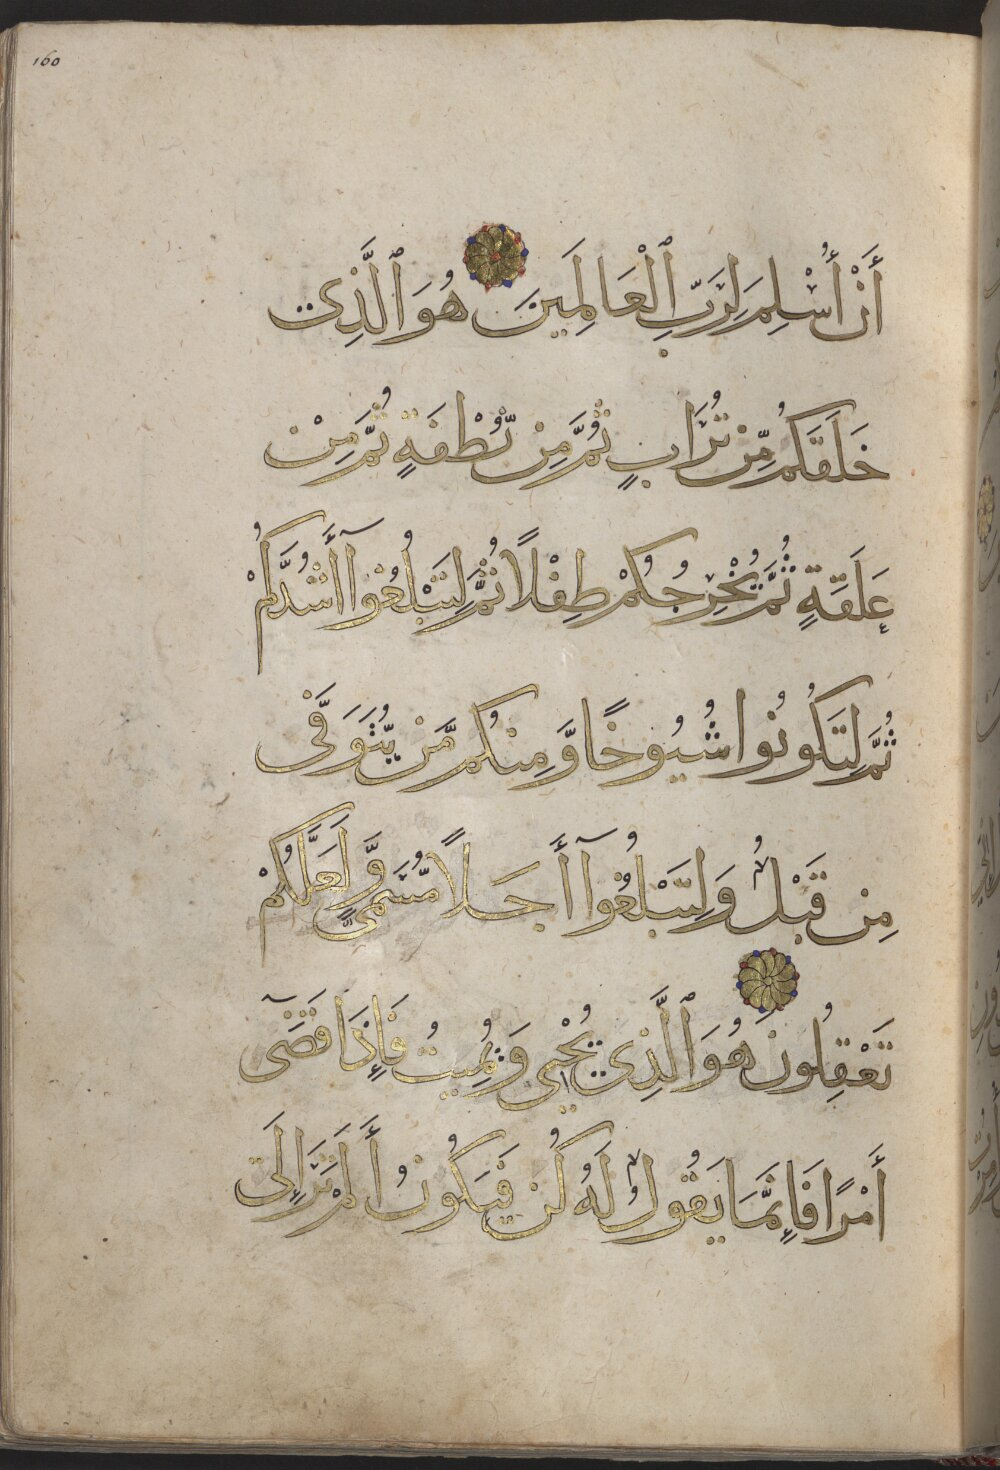 160
أَنْ أُسْلِمَ لِرَبِّ ٱلْعَالَمِينَ هُوَ ٱلَّذِي
خَلَقَكُم مِّن تُرَابٍ ثُمَّ مِن نُّطْفَةٍ ثُمَّ مِنْ
عَلَقَةٍ ثُمَّ يُخْرِجُكُمْ طِفْلًا ثُمَّ لِتَبْلُغُوٓا أَشُدَّكُمْ
ثُمَّ لِتَكُونُوا شُيُوخًا وَّمِنكُم مَّن يُّتَوَفَّى
مِن قَبْلُ وَلِتَبْلُغُوٓا أَجَلًا مُّسَمًّى وَّلَعَلَّكُمْ
تَعْقِلُونَ هُوَ ٱلَّذِي يُحْيِي وَيُمِيتُ فَإِذَا قَضَىٓ
أَمْرًا فَإِنَّمَا يَقُولُ لَهُ كُن فَيَكُونُ أَلَمْ تَرَ إِلَى